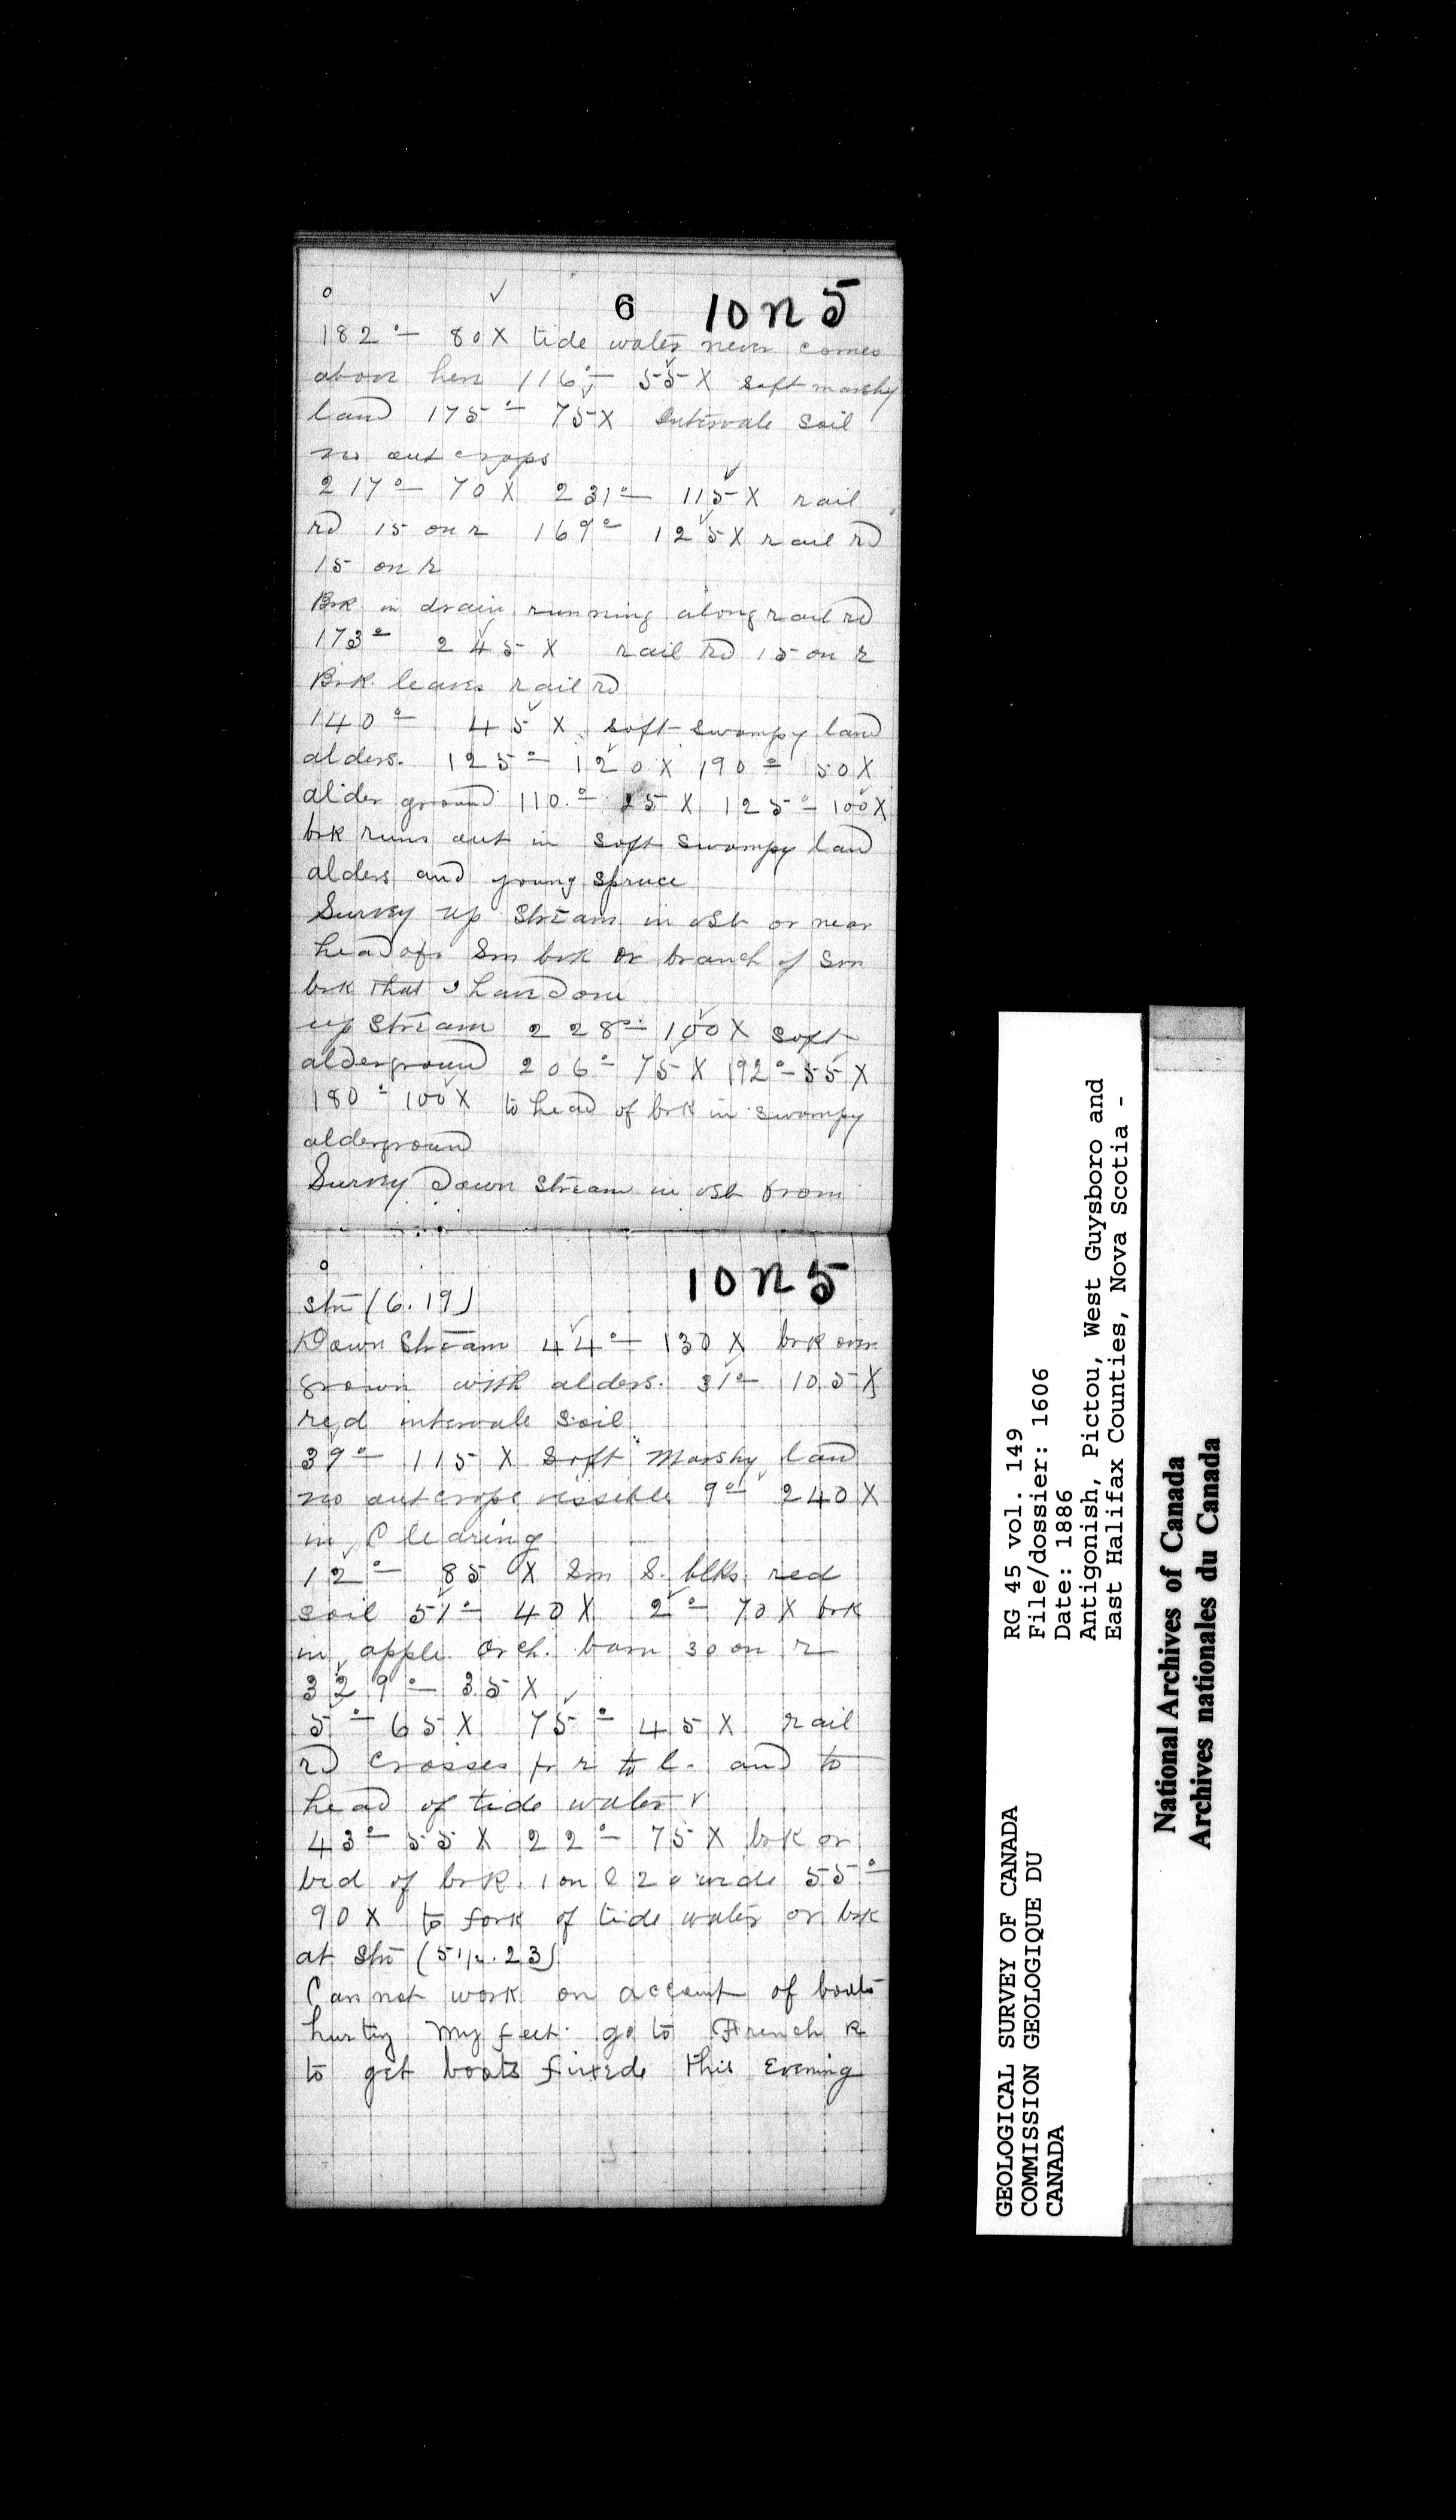 6 10 N 5
182° — 80 X tide water never comes
above here 116° — 55 X soft marshy
land 175° — 75 X Intervale soil
no out crops
217° — 70 X 231° — 115 X rail
rd 15 on r 169° — 125 X rail rd
15 on r
Brk in drain running along rail rd
173° — 245 X rail rd 15 on r
Brk. leaves rail rd
140° — 45 X soft swampy land
alders. 125° — 120 X 190° — 50 X
alder ground 110° — 25 X 125° — 100 X
brk runs out in soft swampy land
alders and young spruce
Survey up stream in at or near
head of sm brk or branch of sm
brk that I have done
up stream 228° — 100 X soft
alderground 206° — 75 X 192° — 55 X
180° — 100 X to head of brk in swampy
alderground
Survey down stream in from
10 N 5
stn (6.19)
Down Stream 44° — 130 X brk over
grown with alders. 31° — 105 X
red intervale soil
39° — 115 X Soft Marshy land
no outcrops vissible 9° — 240 X
in Clearing
12° — 85 X Sm S. blks. red
soil 51° — 40 X 2° — 70 X brk
in apple Orch. barn 30 on r
329° — 35 X
5° — 65 X 75° — 45 X rail
rd crosses fr r to l. and to
head of tide water
43° — 55 X 22° — 75 X brk or
bed of brk. 1 on l 20 wide 55° —
90 X to fork of tide water or brk
at Stn (5 1/2. 23)
Can not work on account of boots
hurting my feet. go to French R
to get boots fixede this Evening
GEOLOGICAL SURVEY OF CANADA
COMMISSION GEOLOGIQUE DU
CANADA
RG 45 vol. 149
File/dossier: 1606
Date: 1886
Antigonish, Pictou, West Guysboro and
East Halifax Counties, Nova Scotia -
National Archives of Canada
Archives nationales du Canada